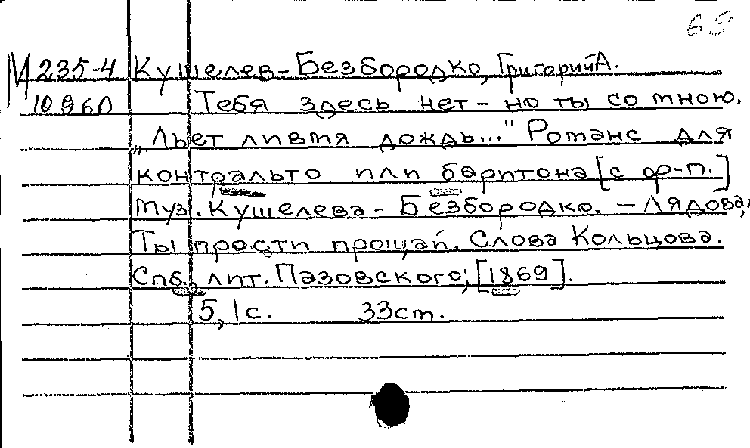 65
М 235-4 Кушелев-Безбородко, Григорий А.
10960 Тебя здесь нет - но ты со мною.
„Льет ливмя дождь..." Романс для
контральто или баритона [с ф-п.]
Муз. Кушелева-Безбородко. - Лядова,
Ты прости прощай. Слова Кольцова.
Спб., лит. Пазовского; [1869].
5, 1с. 33см.